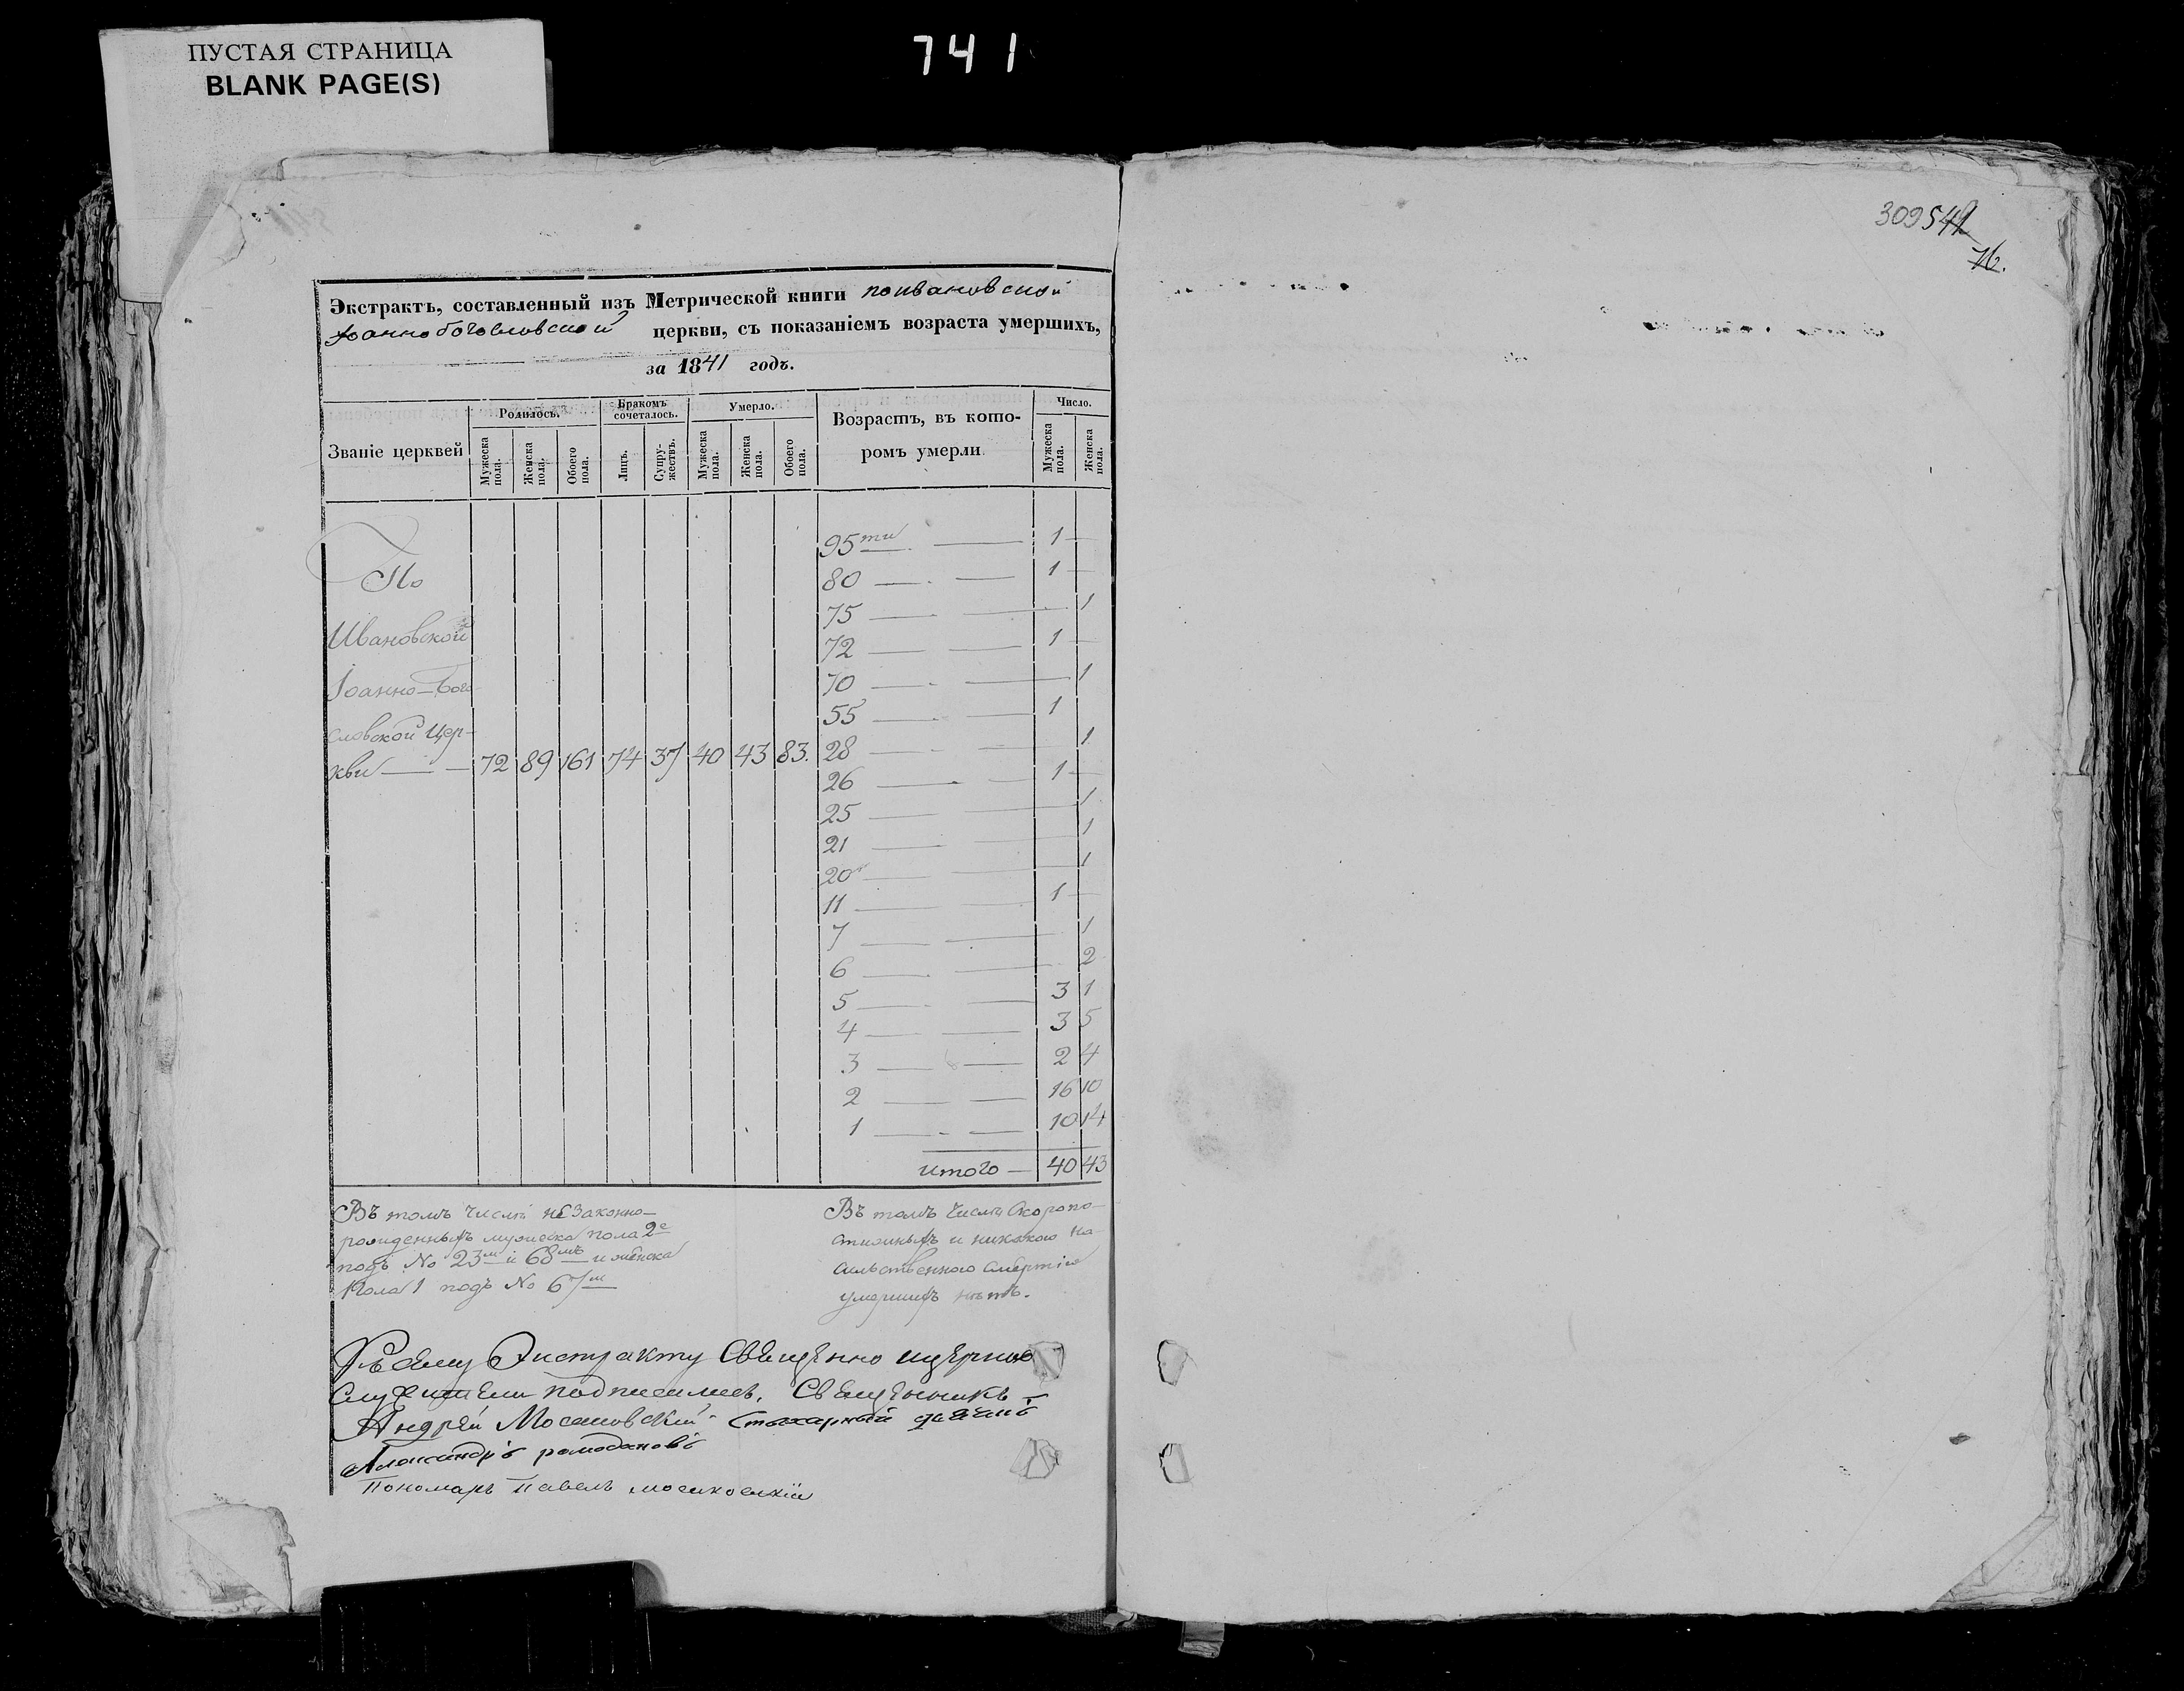 ПУСТАЯ СТРАНИЦА
BLANK PAGE(S)
741
309 542
76.
Экстрактъ, составленный изъ Метрической книги поивановской
Іоаннобогословской церкви, съ показаніемъ возраста умершихъ,
за 1841 годъ.
Званіе церквей
Родилось.
Бракомъ сочеталось.
Умерло.
Возрастъ, въ которомъ умерли
Число.
Мужеска пола.
Женска пола.
Обоего пола.
Лицъ.
Супружествъ.
Мужеска пола.
Женска пола.
Обоего пола.
Мужеска пола.
Женска пола.
По
Ивановской
Іоанно-Бого
словской Цер-
кви — 72 89 161 74 37 40 43 83.
95ти — 1 —
80 — 1 —
75 — 1
72 — 1 —
70 — 1
55 — 1
28 — 1
26 — 1 —
25 — 1
21 — 1
20 — 1
11 — 1 —
7 — 1
6 — 2
5 — 3 1
4 — 3 5
3 — 2 4
2 — 16 10
1 — 10 14
итого — 40 43
Въ томъ числѣ незаконно-
рожденныхъ мужеска пола 2е
подъ No 23м и 68мъ и женска
пола 1 подъ No 67м
Въ томъ числѣ скоропо-
стижныхъ и никакою на-
сильственною смертію
умершихъ нѣтъ.
Къ сему Экстракту Священно ицерково
служители подписались. Священникъ
Андрей Мосаковскій Стихарный дьячокъ
Александръ ромодановъ
Пономарь Павелъ